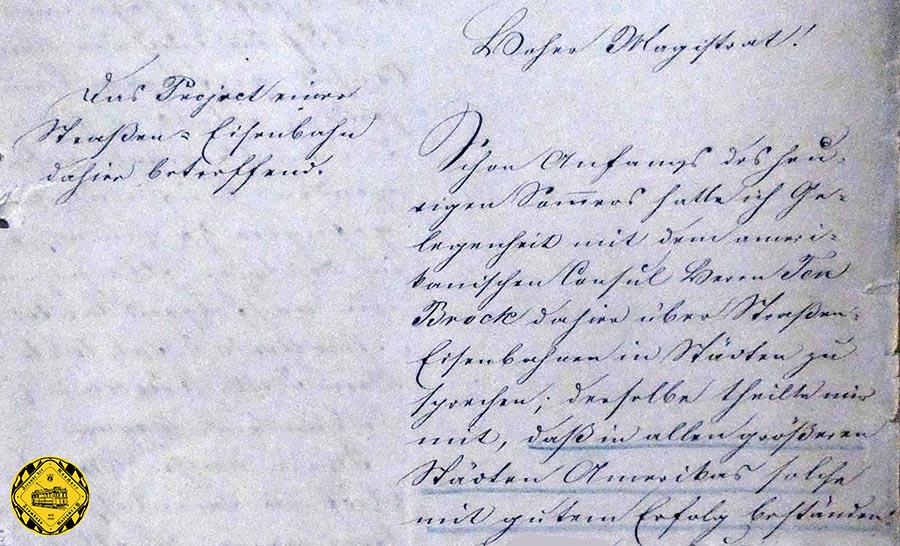 Hoher Magistrat!
Das Project einer
Straßen-Eisenbahn
dahier betreffend.
Schon Anfangs des heu-
rigen Sommers hatte ich Ge-
legenheit mit dem ameri-
kanischen Consul Herrn Ten
Brock dahier über Straßen-
Eisenbahnen in Städten zu
sprechen; derselbe theilte mir
mit, daß in allen größeren
Städten Amerikas solche
mit gutem Erfolg beständen!